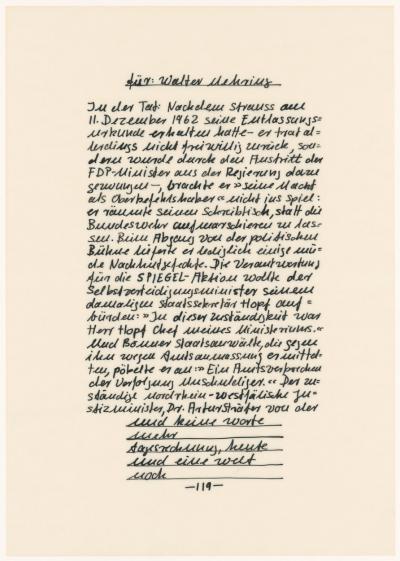 für: Walter Mehring
In der Tat: Nachdem Strauss am
11. Dezember 1962 seine Entlassungs=
urkunde erhalten hatte – er trat al=
lerdings nicht freiwillig zurück, son=
dern wurde durch den Austritt der
FDP-Minister aus der Regierung dazu
gezwungen –, brachte er »seine Macht
als Oberbefehlshaber« nicht ins Spiel:
er räumte seinen Schreibtisch, statt die
Bundeswehr aufmarschieren zu las=
sen. Beim Abgang von der politischen
Bühne lieferte er lediglich einige mü=
de Nachhutgefechte. Die Verantwortung
für die SPIEGEL-Aktion wollte der
Selbstverteidigungsminister seinem
damaligen Staatssekretär Hopf auf=
bürden: »In dieser Zuständigkeit war
Herr Hopf Chef meines Ministeriums.«
Und Bonner Staatsanwälte, die gegen
ihn wegen Amtsanmassung ermittel=
ten, pöbelte er an: »Ein Amtsverbrechen
der Verfolgung Unschuldiger.« Der zu=
ständige nordrhein-westfälische Ju=
stizminister, Dr. Artur Sträter von der
und keine Worte
mehr
Abrechnung, heute
und eine Welt
noch
–119–